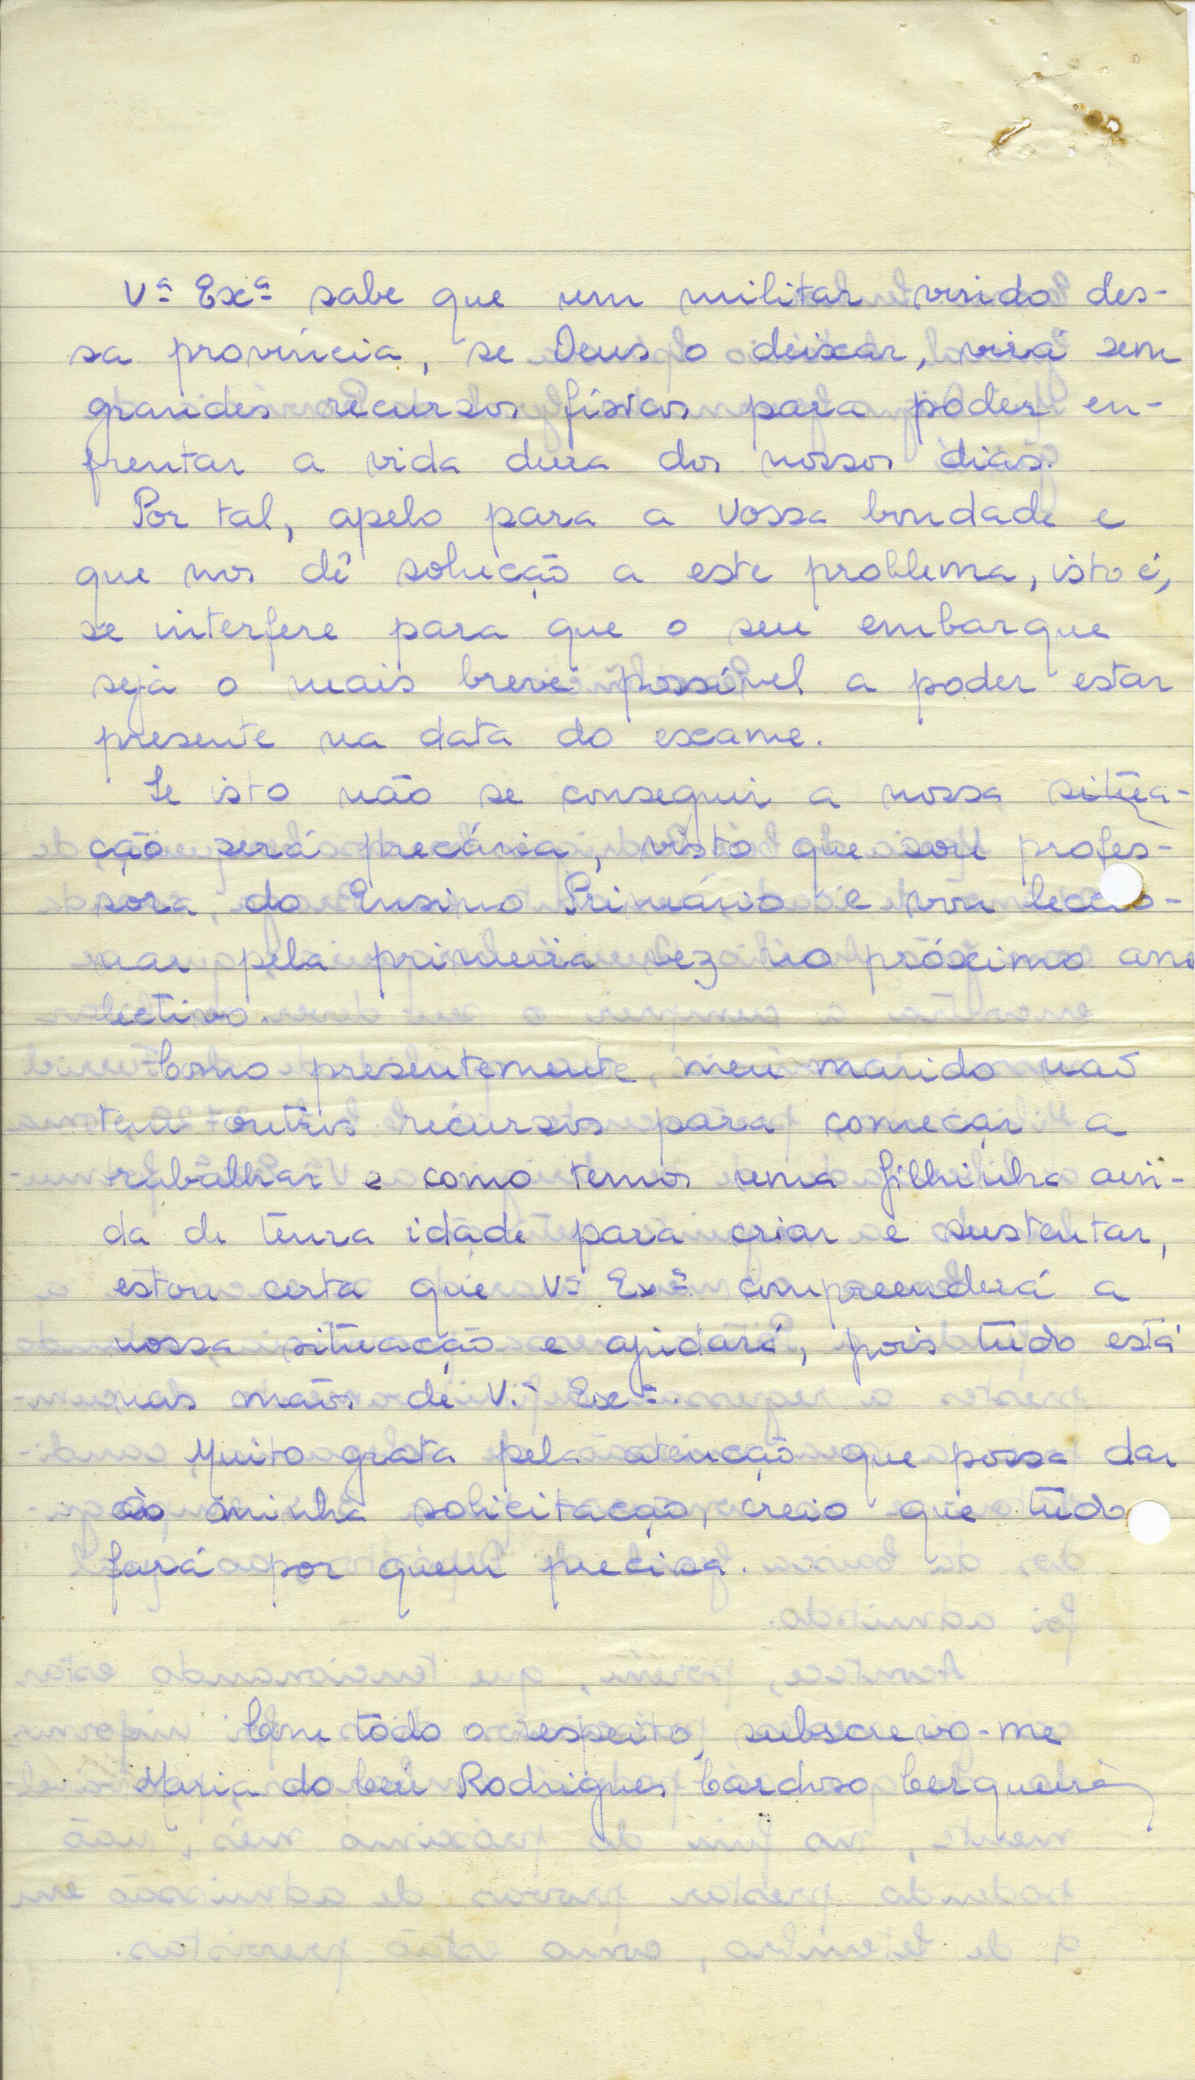 Vª Exª sabe que um militar vindo des-
sa província, se Deus o deixar, virá sem
grandes recursos físicos para poder en-
frentar a vida dura dos nossos dias.
Por tal, apelo para a Vossa bondade e
que nos dê solução a este problema, isto é,
se interfere para que o seu embarque
seja o mais breve possível a poder estar
presente na data do exame.
Se isto não se conseguir a nossa situa-
ção será precária, visto que sou profes-
sora do Ensino Primário e vou leccio-
nar pela primeira vez no próximo ano
lectivo.
Como presentemente, meu marido não
tem outros recursos para começar a
trabalhar e como temos uma filhinha ain-
da de tenra idade para criar e sustentar,
estou certa que Vª Exª compreenderá a
nossa situação e ajudará, pois tudo está
nas mãos de V.ª Exª.
Muito grata pela atenção que possa dar
à minha solicitação, creio que tudo
fará por quem precisa.
Com todo o respeito, subscrevo-me
Maria do Céu Rodrigues Cardoso Cerqueira